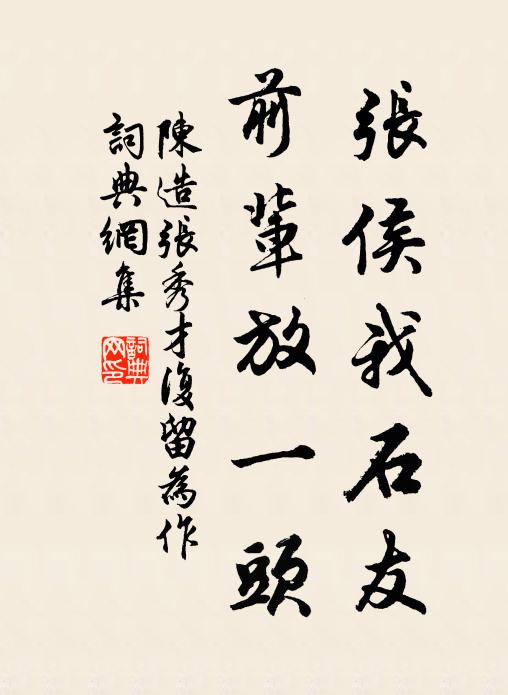 張侯我石友
前輩放一頭
陳造張秀才復留為作
詞典網集
詞典网印